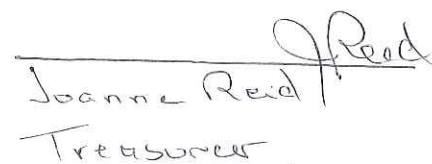 JReed
Joanne Reid
Treasurer